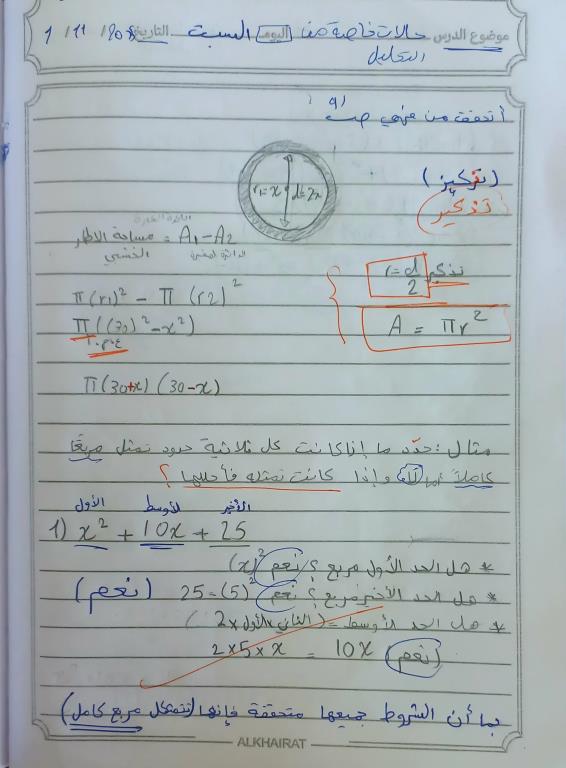 موضوع الدرس حالات خاصة من اليوم السبت التاريخ 1 / 11 / 20
التحليل
أتحقق من فهمي ص
(تركيز)
تذكير
r1=x d=2x
الدائرة الكبيرة
مساحة الاطار = A1 - A2
الخشبي الدائرة الصغيرة
تذكير r = d/2
π(r1)² - π(r2)²
π((30)² - x²)
ع.م.أ
A = πr²
π(30+x)(30-x)
مثال: حدّد ما إذا كانت كل ثلاثية حدود تمثل مربعًا
كاملاً أم لا وإذا كانت تمثله فأحللها؟
الأول الأوسط الأخير
1) x² + 10x + 25
* هل الحد الأول مربع؟ نعم (x)²
* هل الحد الأخير مربع؟ نعم 25=(5)² (نعم)
* هل الحد الأوسط = (الثاني×الأول×2)
2×5×x = 10x (نعم)
بما أن الشروط جميعها متحققة فإنها (تشكل مربع كامل)
ALKHAIRAT